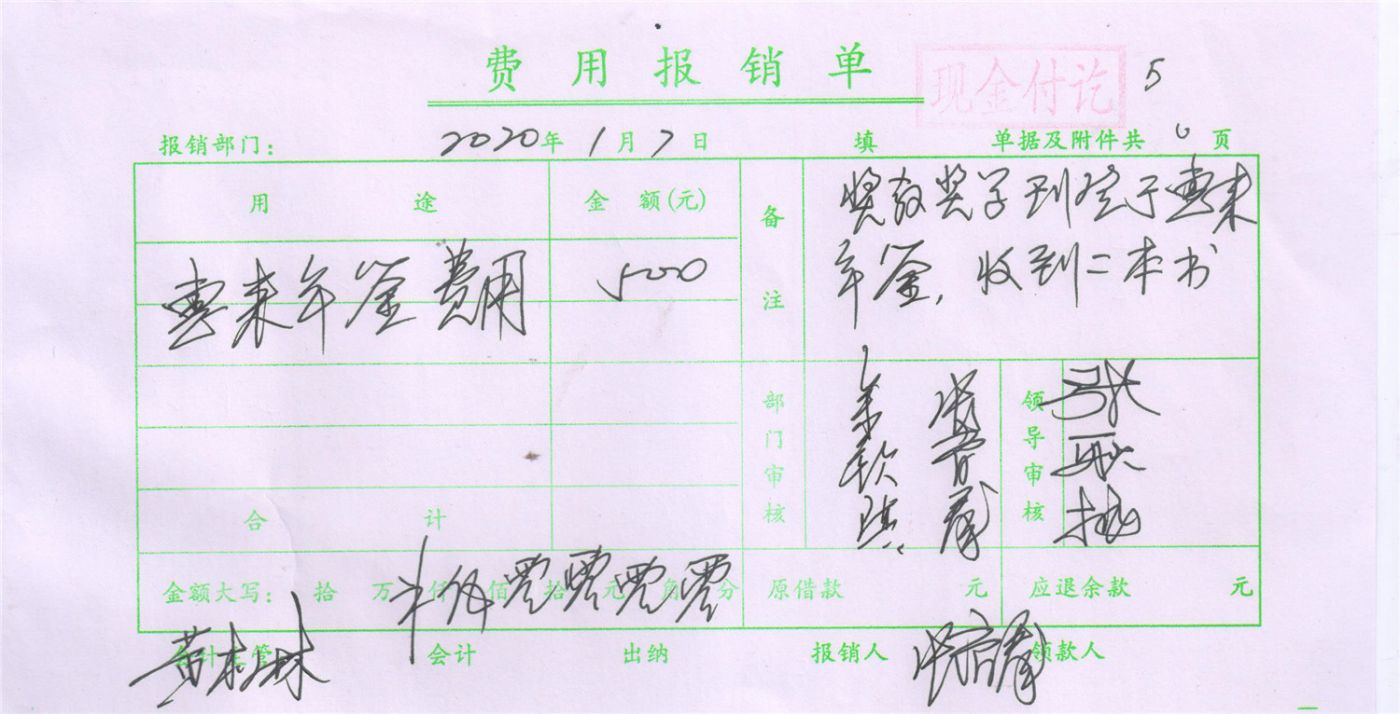 费用报销单
现金付讫
5
报销部门: 2020年1月7日 填 单据及附件共 页
用途 金额(元) 备注 奖教奖学刊登于惠来
年鉴,收到二本书
惠来年鉴费用 500
部门审核 领导审核
合计
金额大写: 拾 万 仟 佰 拾 元 角 分 零零零零 原借款 元 应退余款 元
会计主管 会计 出纳 报销人 领款人